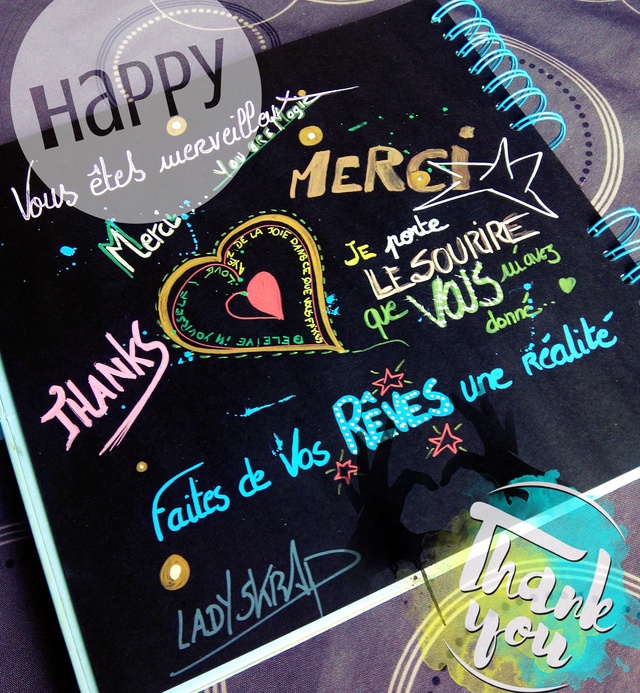 HAPPY
Vous êtes merveilleux
You are Magic
MERCI
Merci
AYEZ DE LA JOIE DANS CE QUE VOUS FAITES
LOVE
BELEIVE IN YOURSELF
JE porte
LE SOURIRE
que VOUS m'avez
donné...
THANKS
Faites de Vos RÊVES une réalité
LADYSKRAP
Thank
you